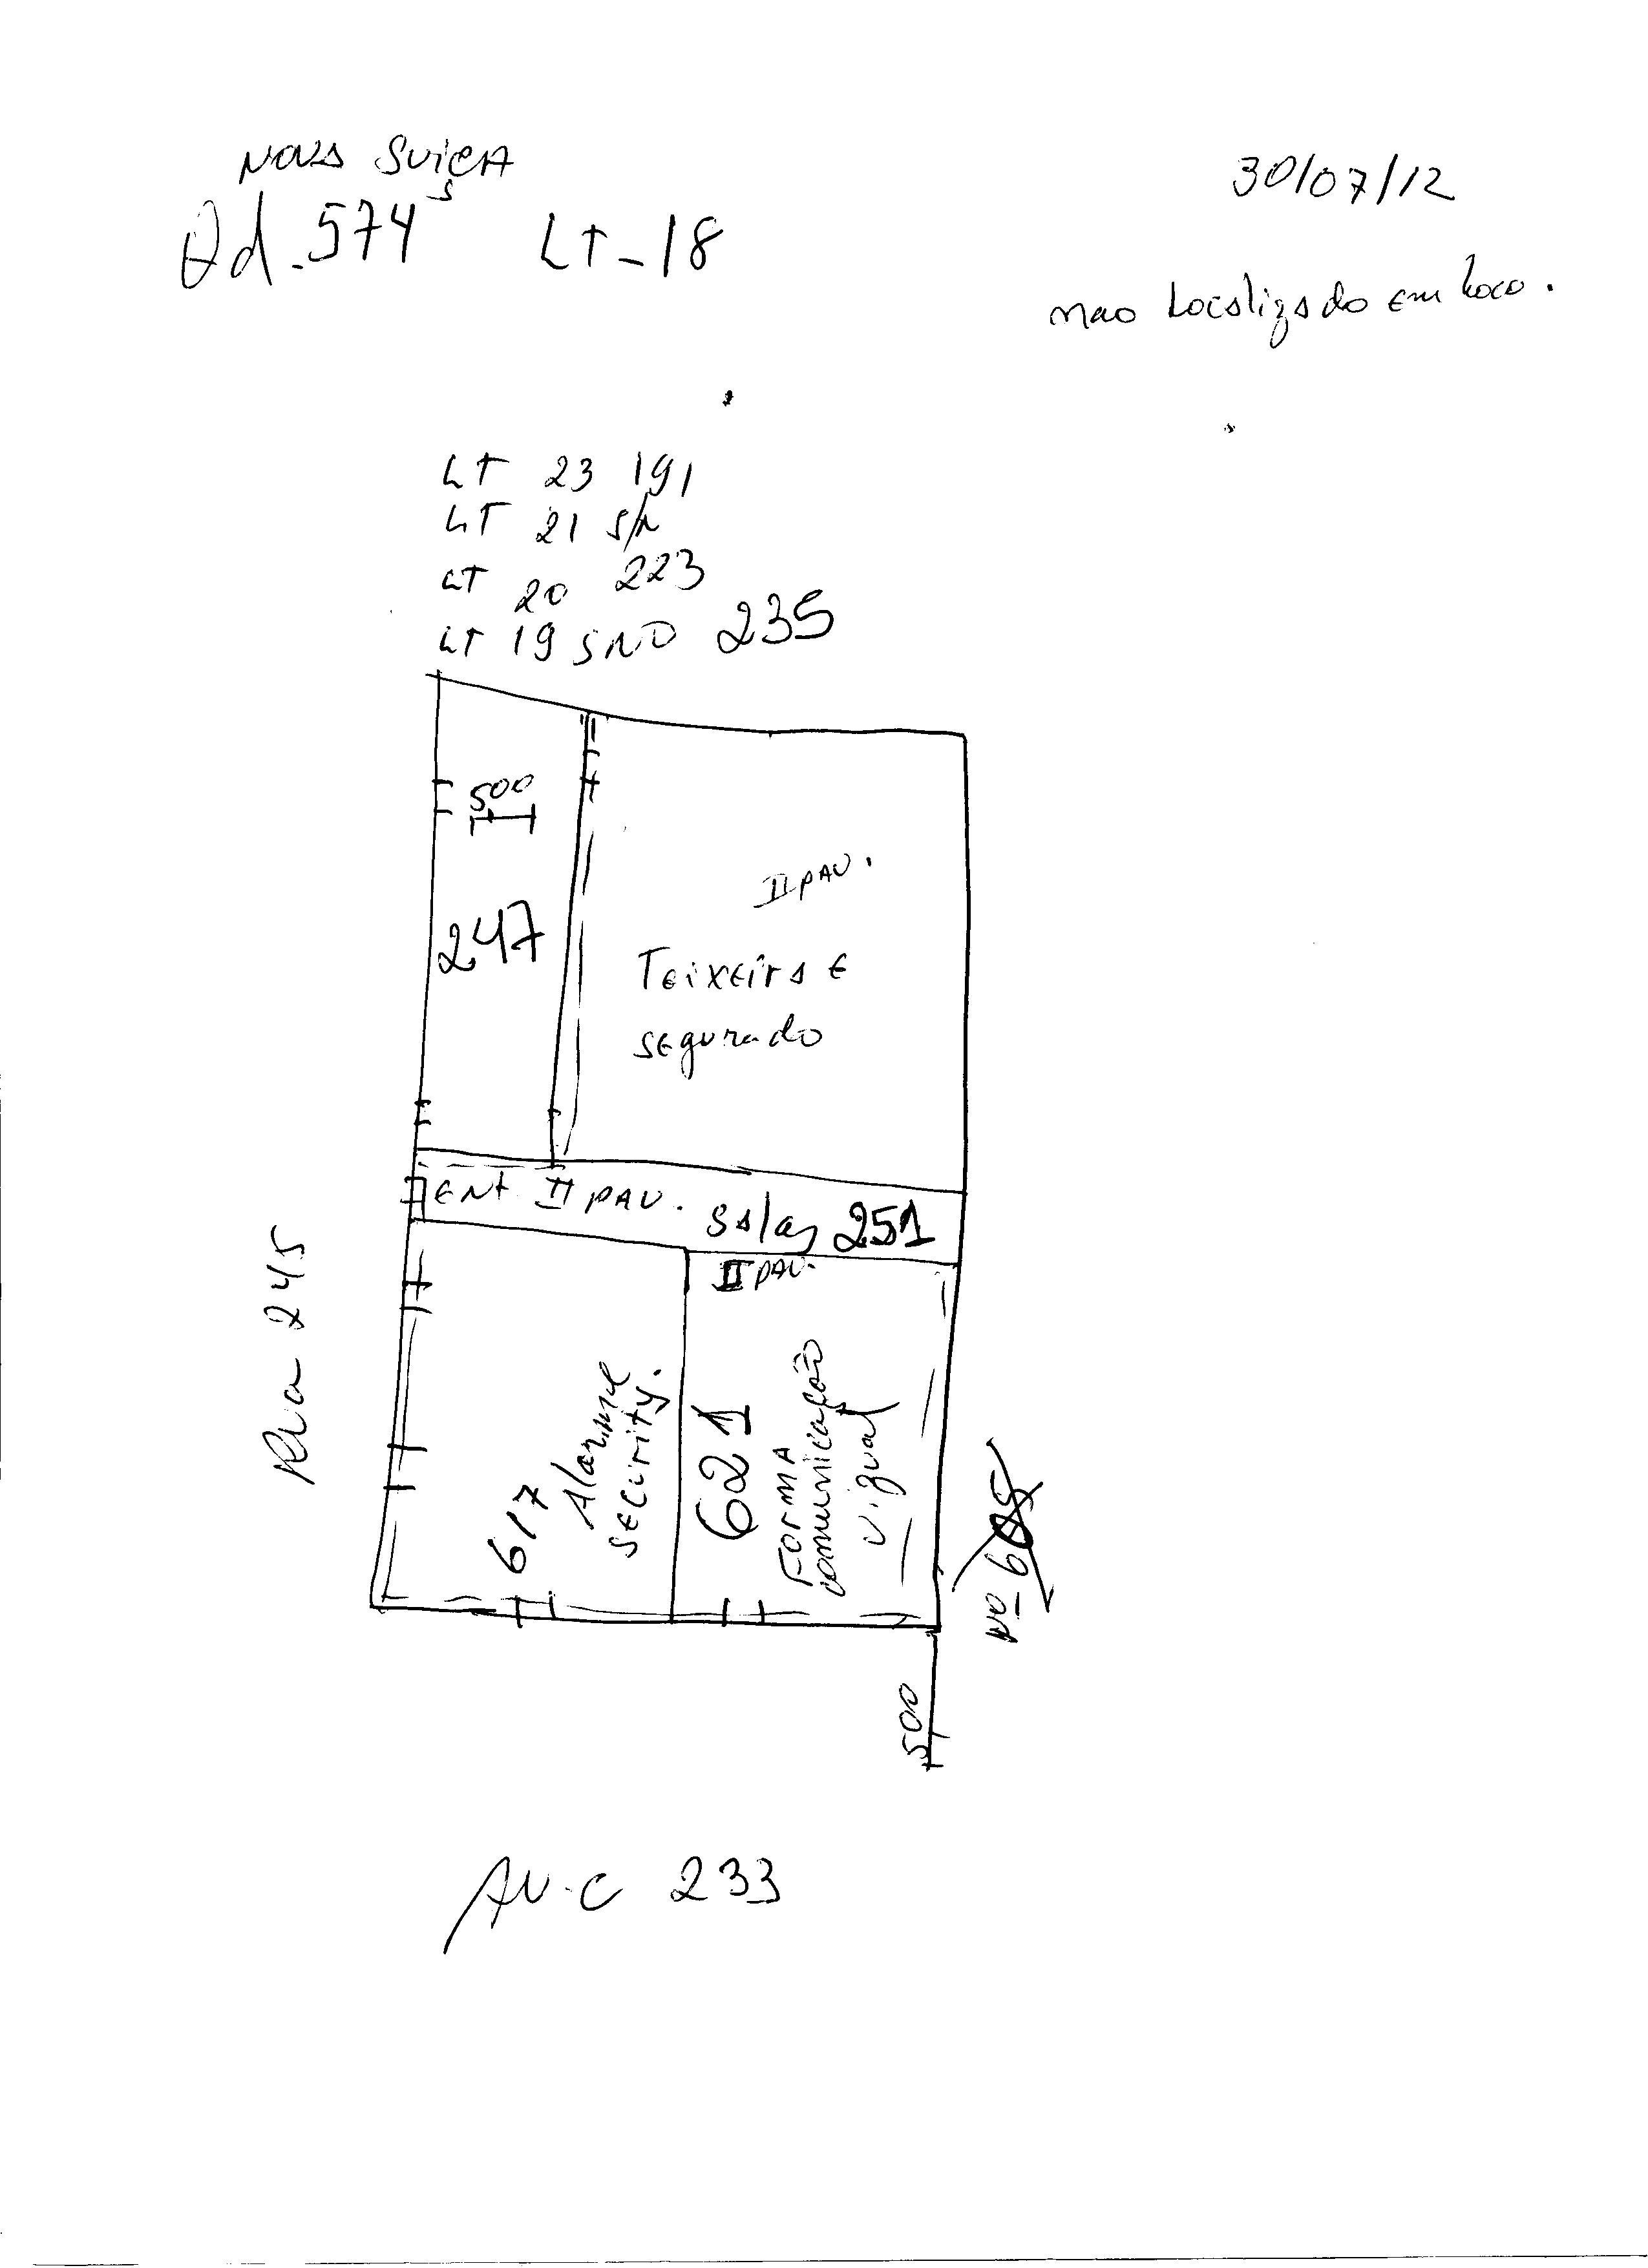 NOVA SUIÇA
S
Qd-574 LT-18
30/07/12
nao Localizado em Loco.
LT 23 191
LT 21 S/N
LT 20 223
LT 19 SNO 235
500
247
II PAV.
Teixeira E
segurado
ENT II PAV. Salas 251
II PAV.
Rua 245
617
Alarme
Security.
621
FORMA
comunicação
Vizual
Nº 605
500
AV. C 233